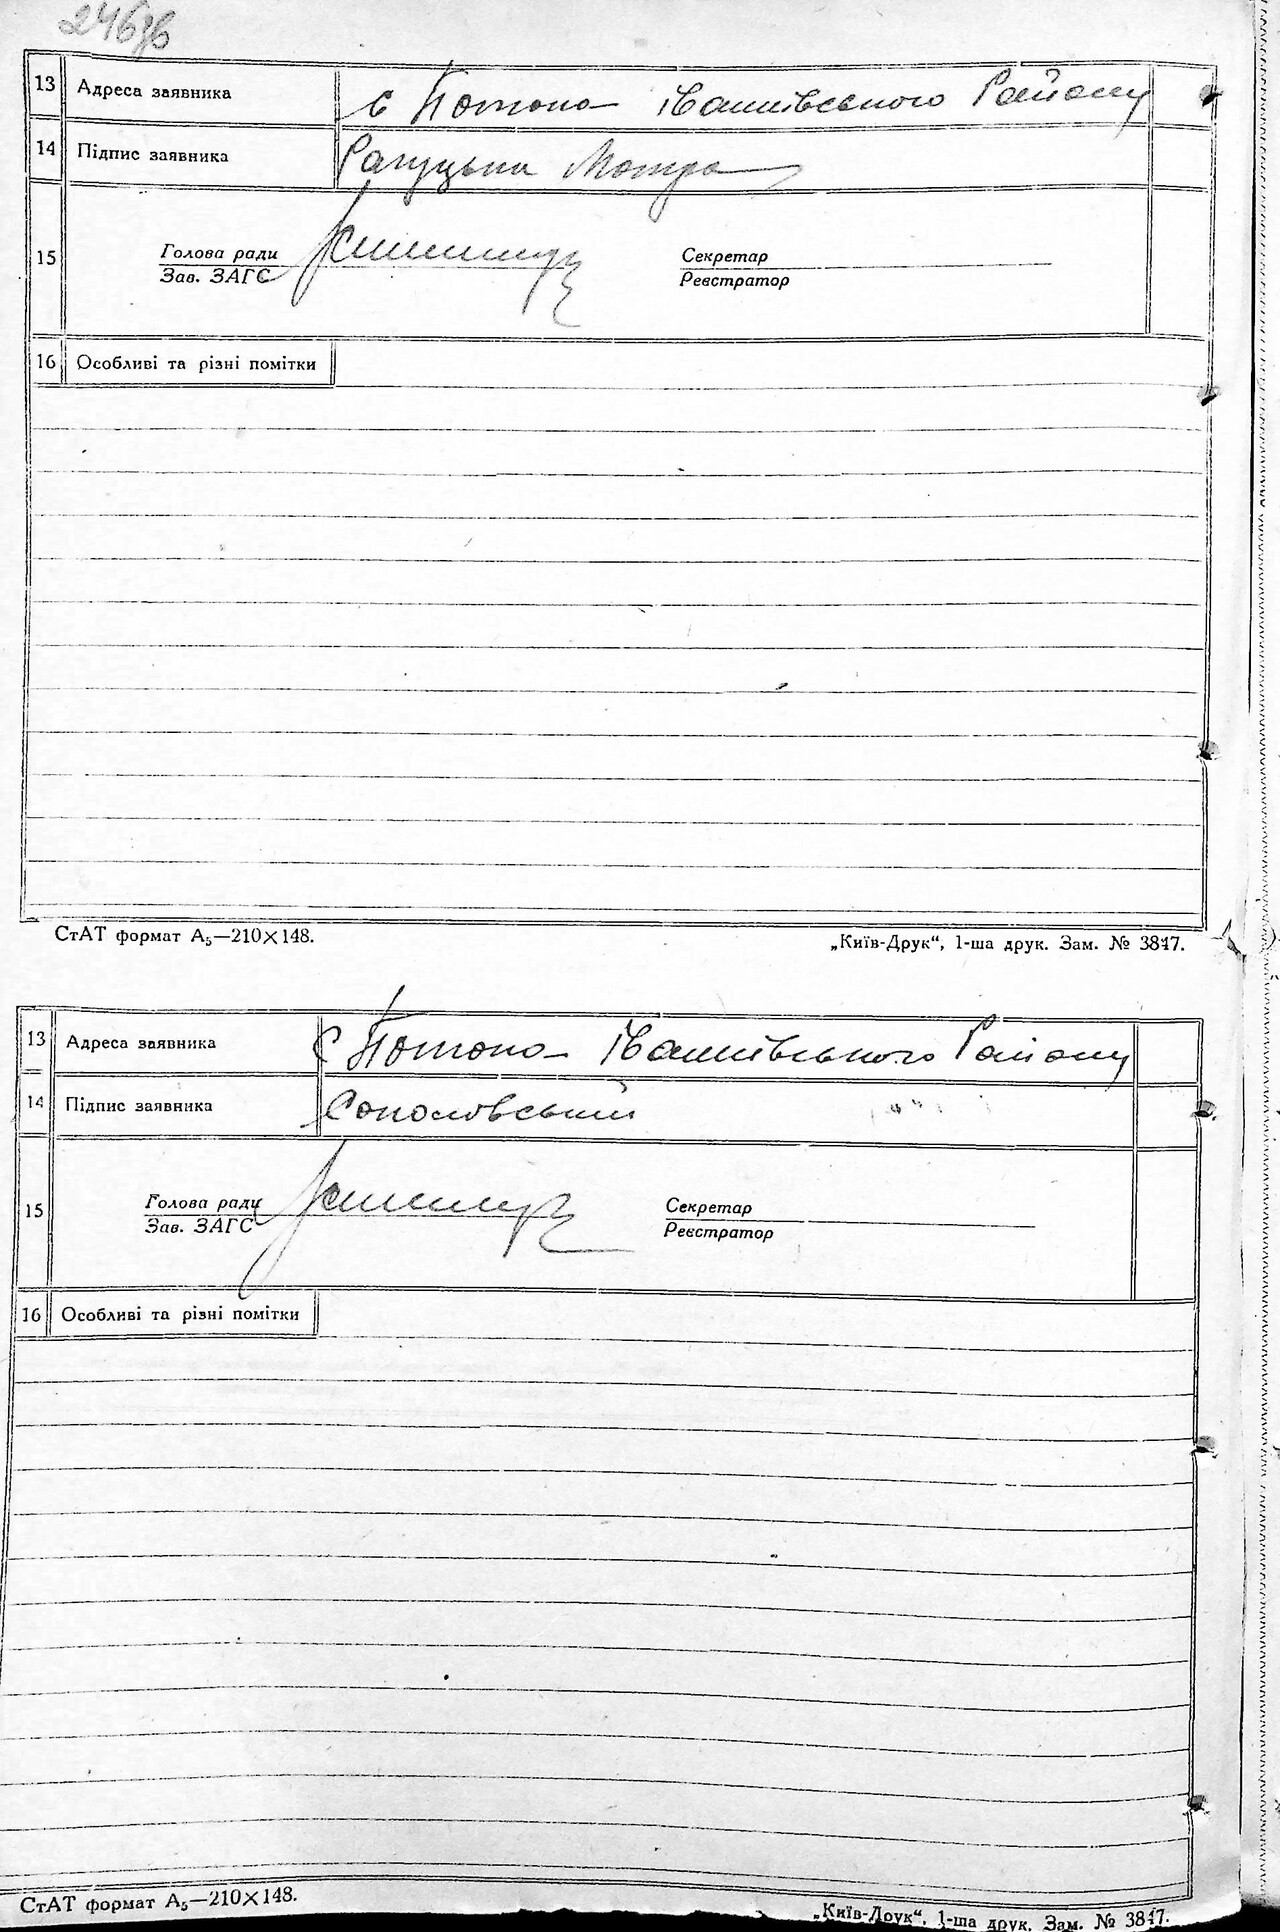 246зв
13 Адреса заявника с Потоки Іваньківського Району
14 Підпис заявника Рагуцька Мотря
15 Голова ради Секретар
Зав. ЗАГС Реєстратор
16 Особливі та різні помітки
СтАТ формат А₅—210×148. „Київ-Друк“, 1-ша друк. Зам. № 3847.
13 Адреса заявника с Потоки Іваньківського Району
14 Підпис заявника Соколовський
15 Голова ради Секретар
Зав. ЗАГС Реєстратор
16 Особливі та різні помітки
СтАТ формат А₅—210×148. „Київ-Друк“, 1-ша друк. Зам. № 3847.